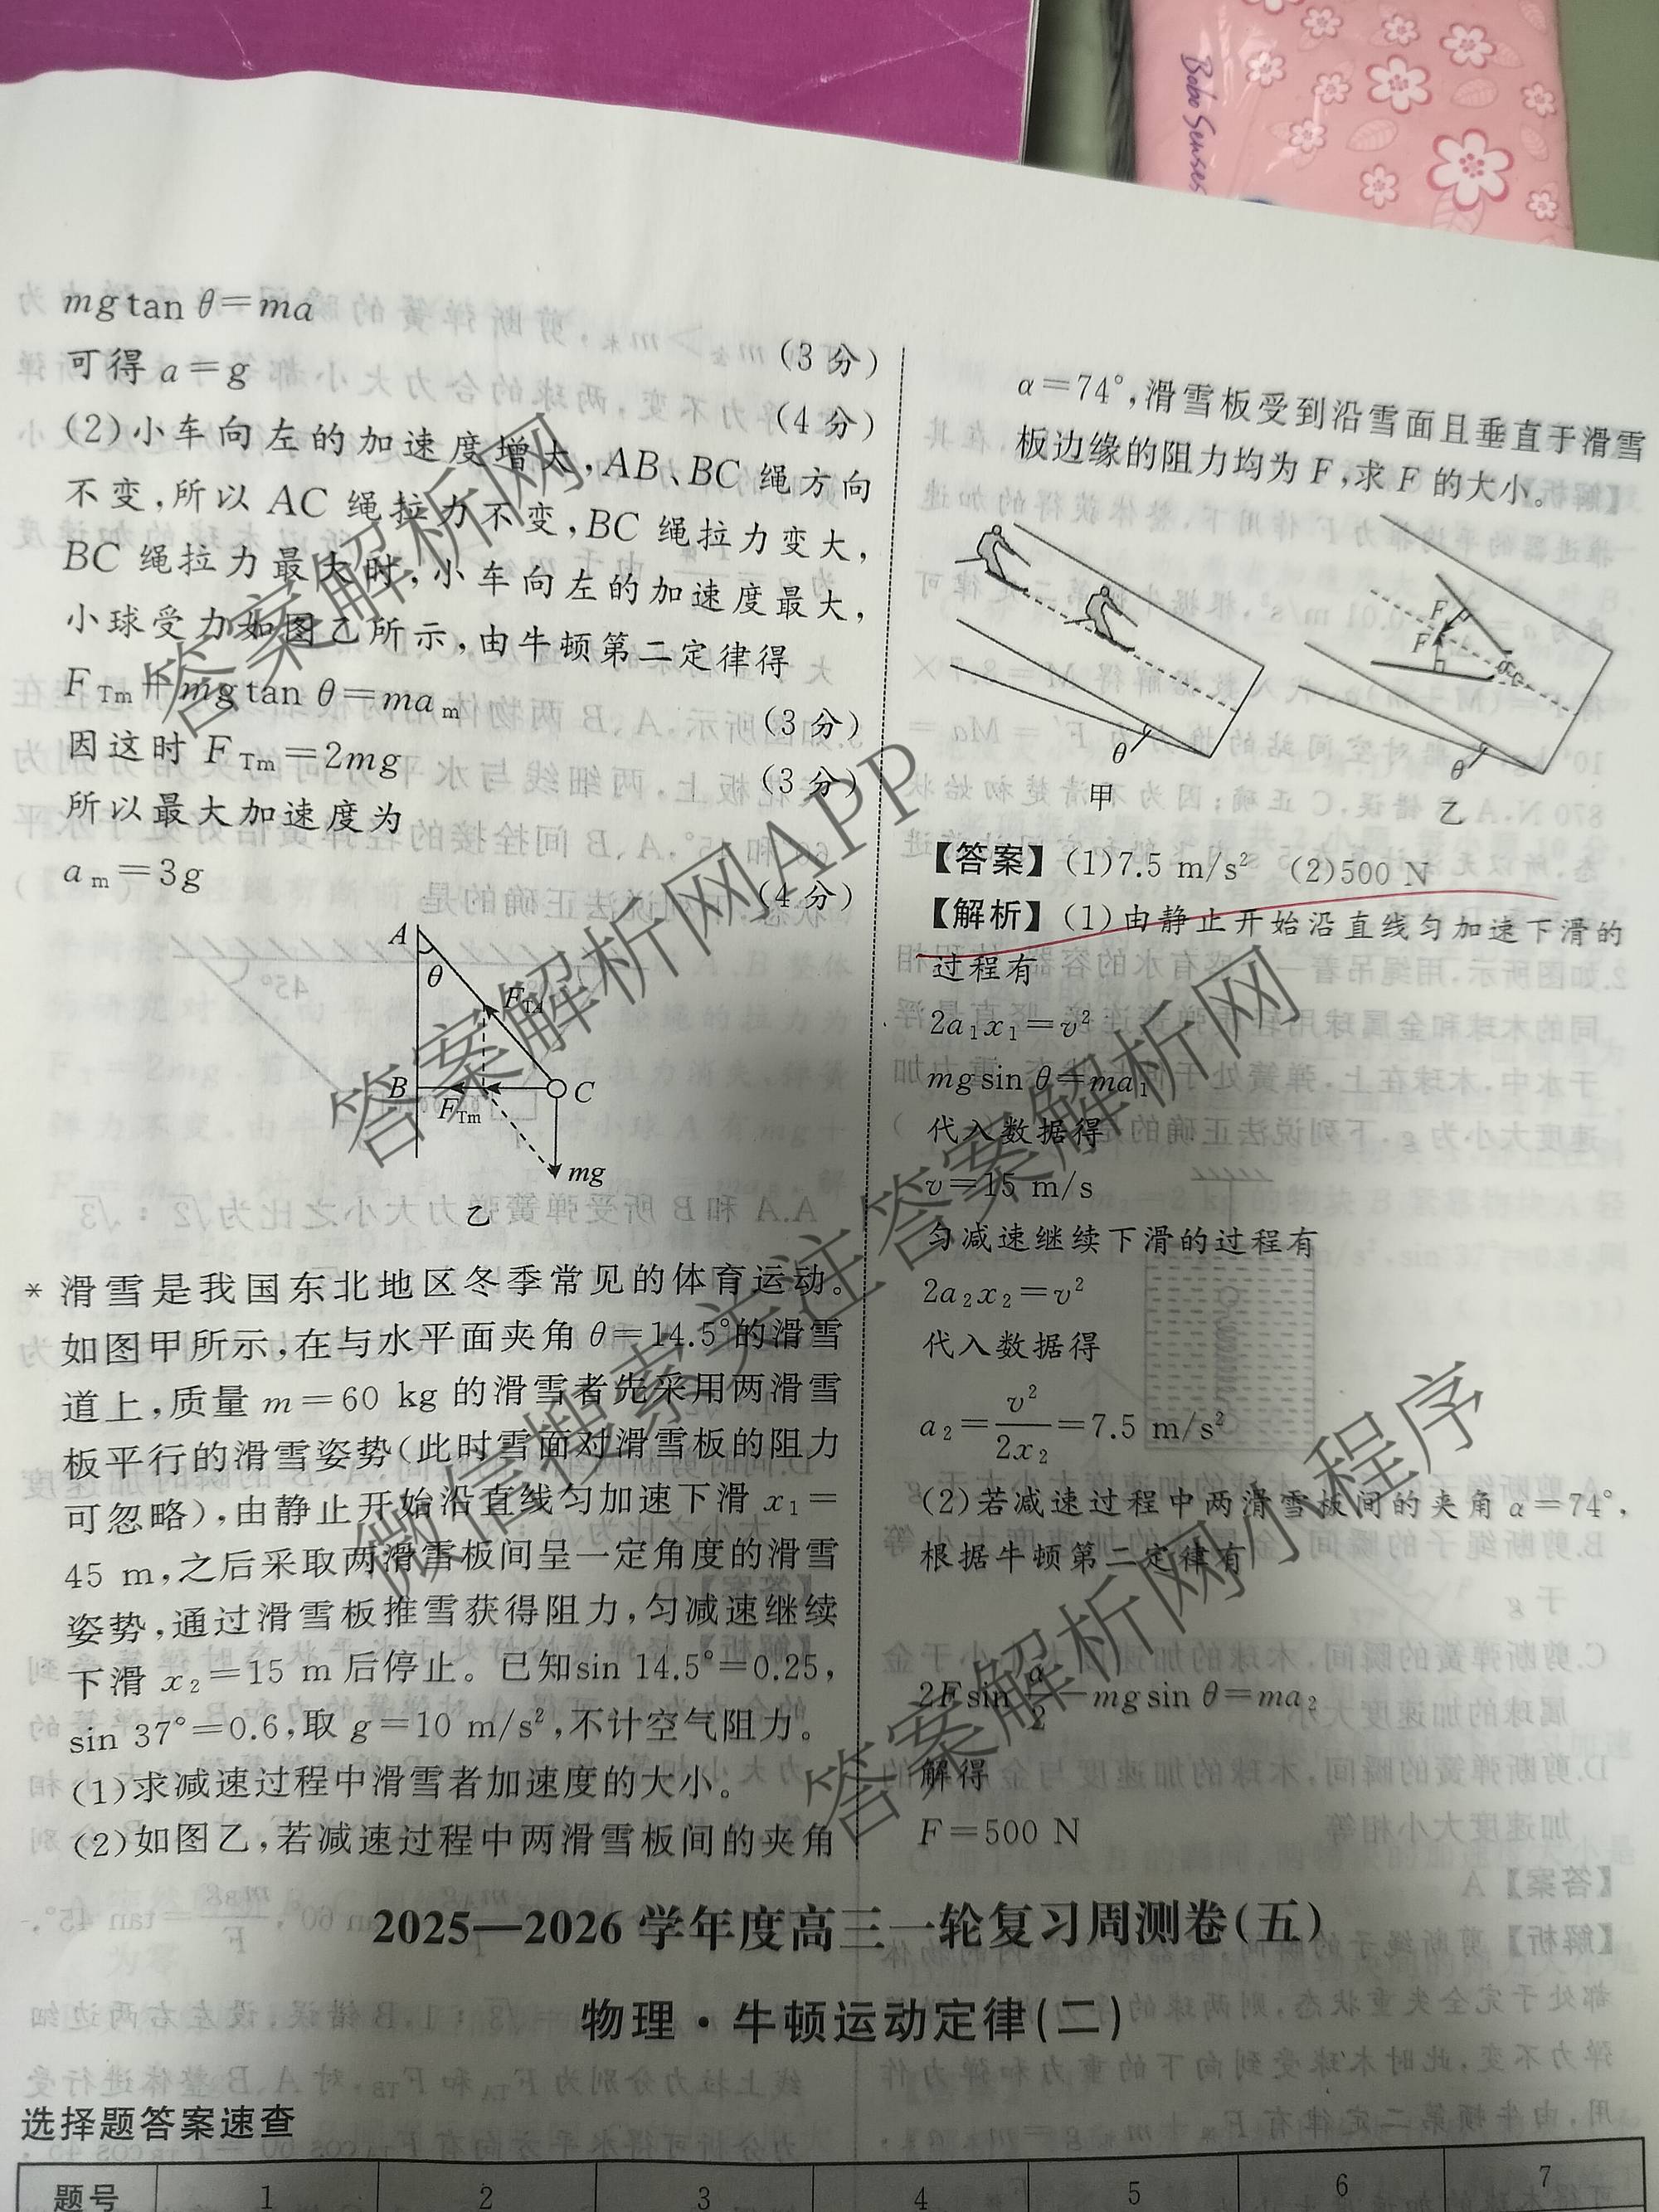 Bobo Senses
mg tan θ=ma
(3分)
可得 a=g
(4分)
(2)小车向左的加速度增大,AB、BC 绳方向
不变,所以 AC 绳拉力不变,BC 绳拉力变大,
BC 绳拉力最大时,小车向左的加速度最大,
小球受力如图乙所示,由牛顿第二定律得
F_Tm+mg tan θ=ma_m
(3分)
因这时 F_Tm=2mg
(3分)
所以最大加速度为
a_m=3g
(4分)
A
θ
F_TA
B
F_Tm
C
mg
乙
* 滑雪是我国东北地区冬季常见的体育运动。
如图甲所示,在与水平面夹角 θ=14.5°的滑雪
道上,质量 m=60 kg 的滑雪者先采用两滑雪
板平行的滑雪姿势(此时雪面对滑雪板的阻力
可忽略),由静止开始沿直线匀加速下滑 x₁=
45 m,之后采取两滑雪板间呈一定角度的滑雪
姿势,通过滑雪板推雪获得阻力,匀减速继续
下滑 x₂=15 m 后停止。已知sin 14.5°=0.25,
sin 37°=0.6,取 g=10 m/s²,不计空气阻力。
(1)求减速过程中滑雪者加速度的大小。
(2)如图乙,若减速过程中两滑雪板间的夹角
α=74°,滑雪板受到沿雪面且垂直于滑雪
板边缘的阻力均为 F,求 F 的大小。
θ
甲
F
F
α
θ
乙
【答案】(1)7.5 m/s² (2)500 N
【解析】(1)由静止开始沿直线匀加速下滑的
过程有
2a₁x₁=v²
mg sin θ=ma₁
代入数据得
v=15 m/s
匀减速继续下滑的过程有
2a₂x₂=v²
代入数据得
a₂=v²/2x₂=7.5 m/s²
(2)若减速过程中两滑雪板间的夹角 α=74°,
根据牛顿第二定律有
2F sin α/2−mg sin θ=ma₂
解得
F=500 N
2025—2026 学年度高三一轮复习周测卷(五)
物理·牛顿运动定律(二)
选择题答案速查
题号 1 2 3 4 5 6 7
答案解析网
微信搜索关注答案解析网
答案解析网APP
答案解析网小程序